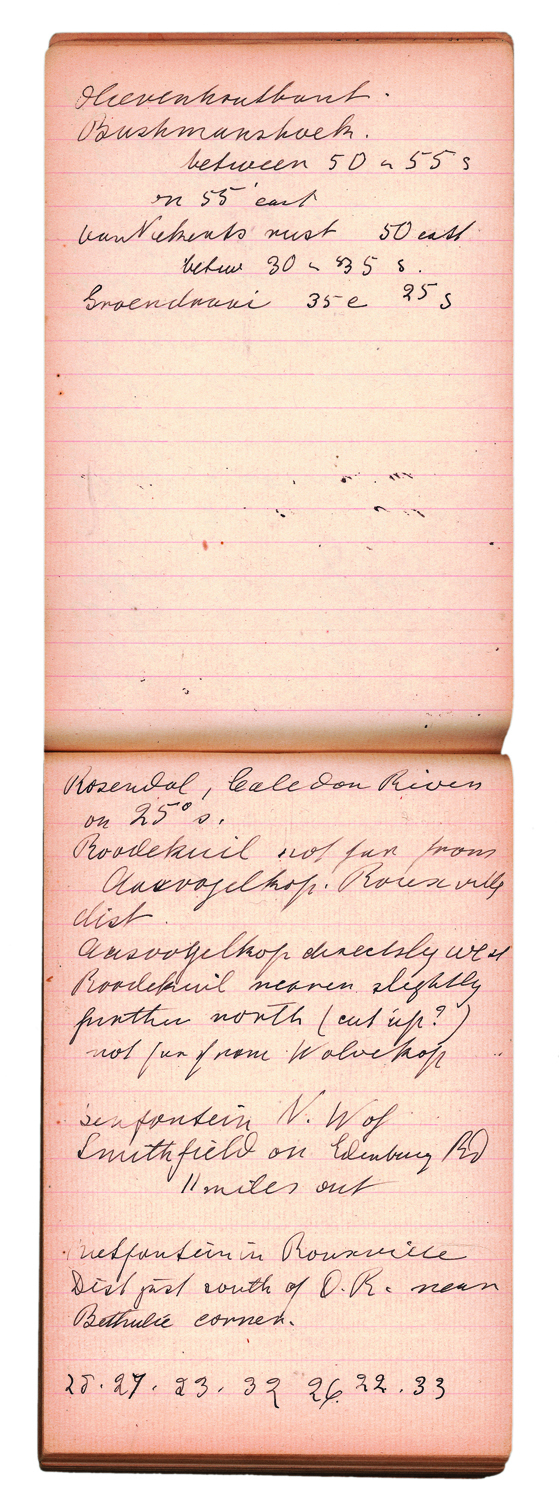 Olievenhoutbank.
Bushmanshoek.
between 50 & 55 s
on 55' east
van Niekerks rust 50 east
betw 30 & 35 s.
Groendraai 35 e 25 s
Rosendal, Caledon River
on 25° s.
Roodekuil not far from
Aasvogelkop. Rouxville
dist
Aasvogelkop directly west
Roodekuil nearer slightly
further north (cut up?)
not far from Wolvekop
senfontein N. W of
Smithfield on Edenburg Rd
11 miles out
netfontein in Rouxville
Dist just south of O. R. near
Bethulie corner.
28. 27. 23. 32 26. 22. 33